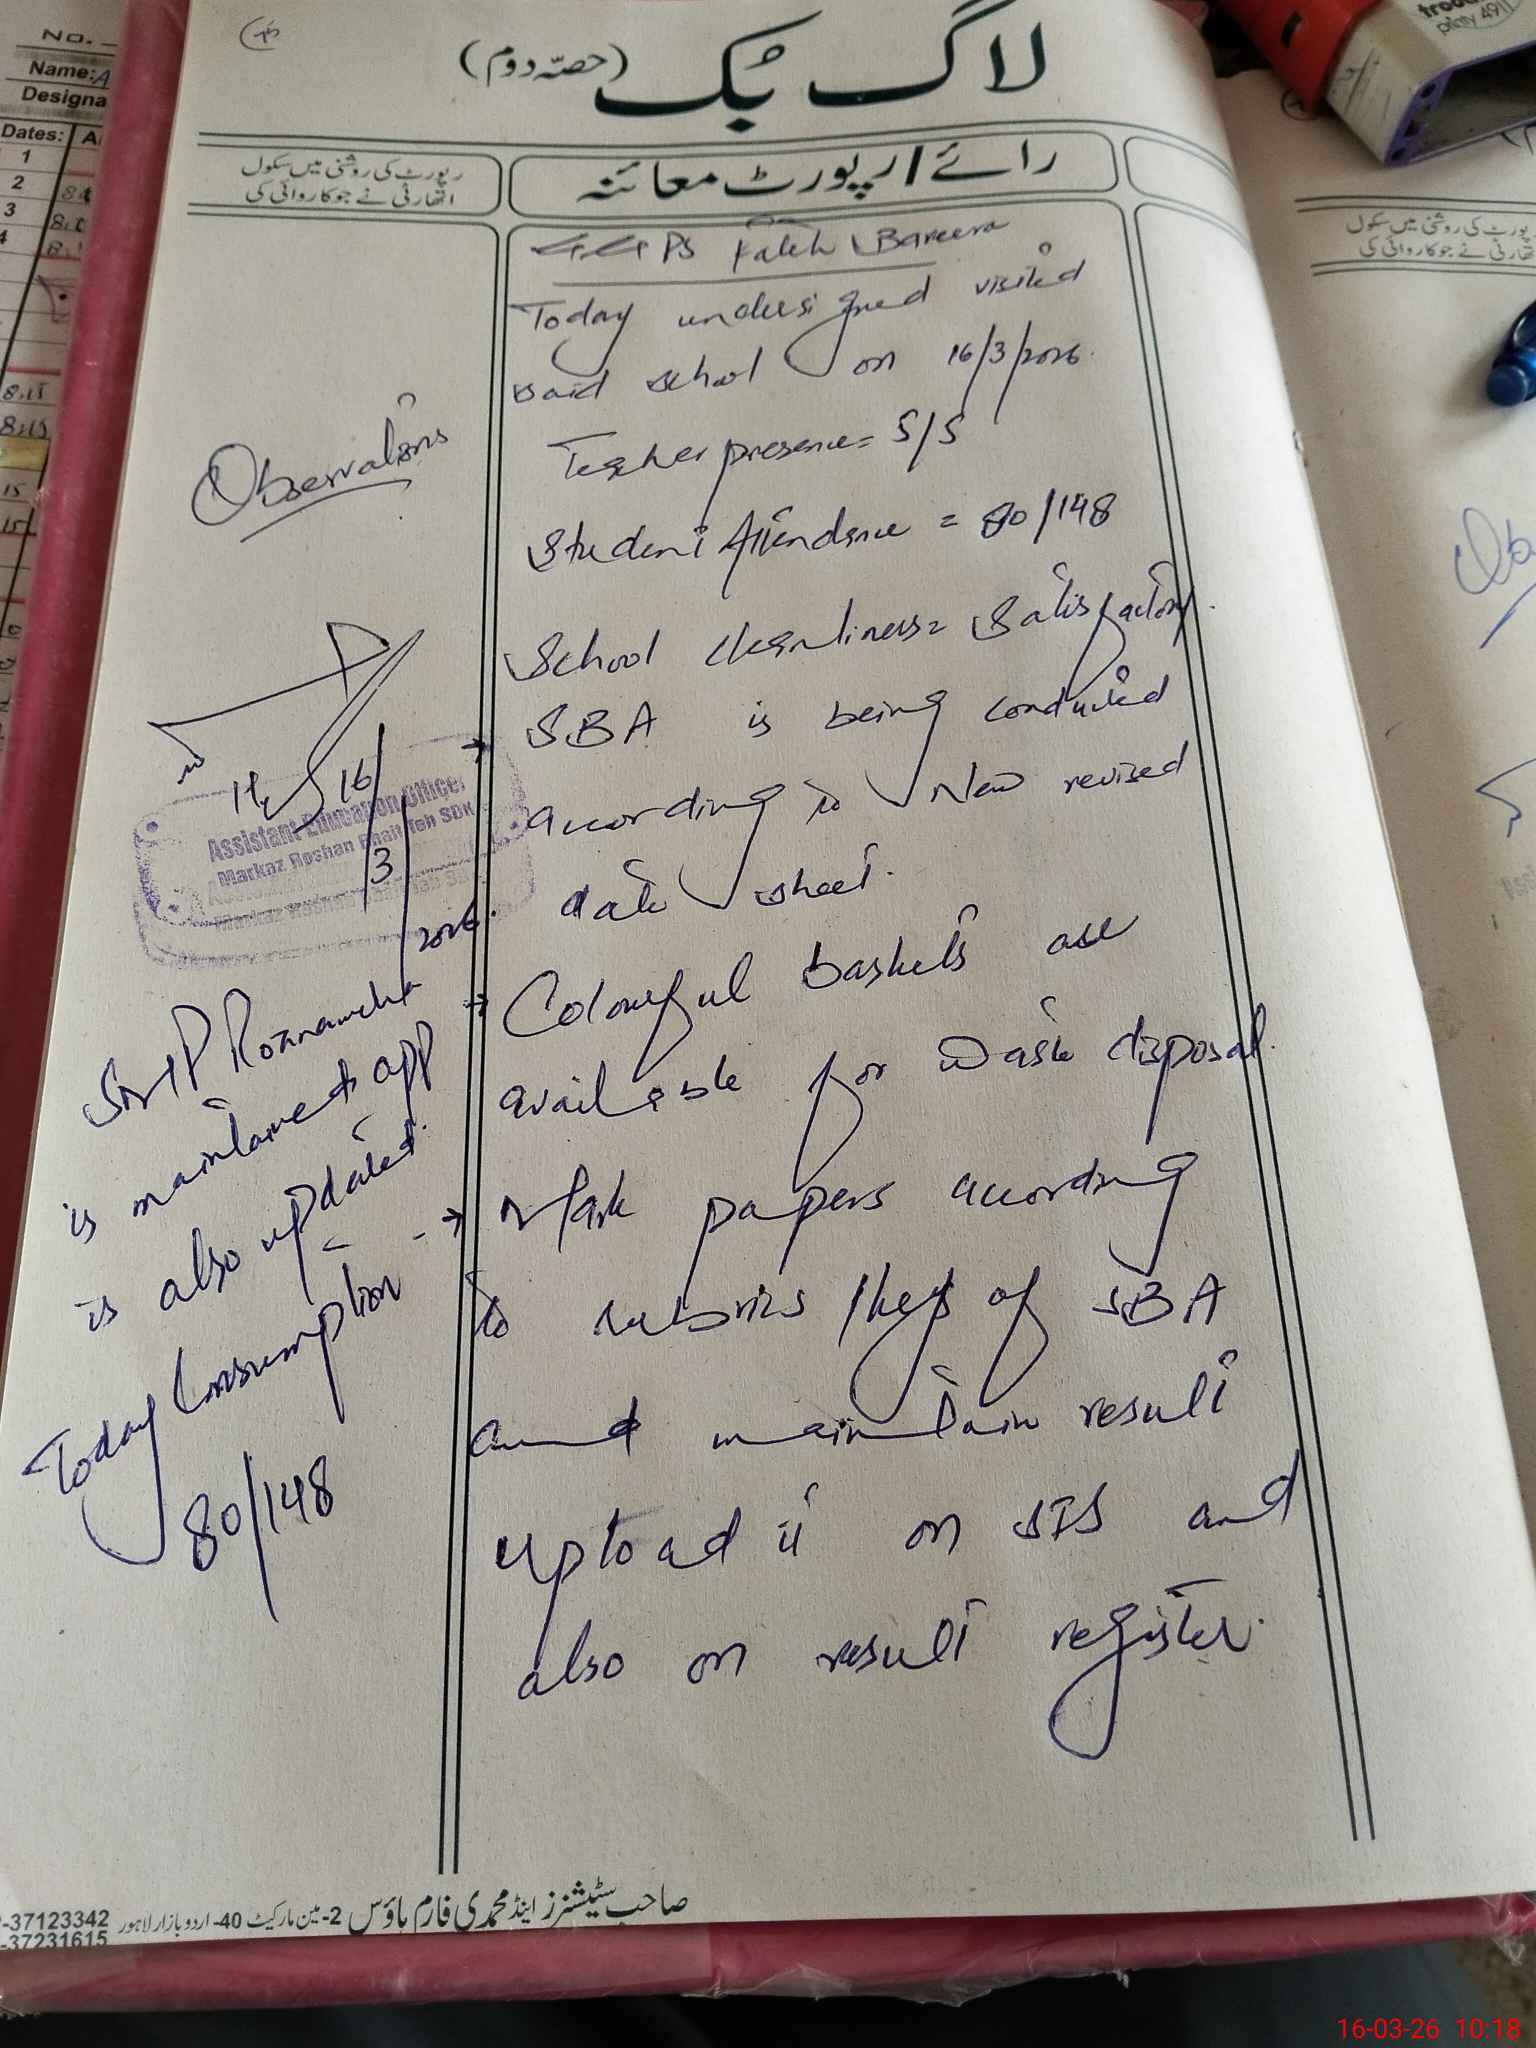 لاگ بک (حصّہ دوم)
رائے / رپورٹ معائنہ
رپورٹ کی روشنی میں سکول
اتھارٹی نے جو کاروائی کی
PS Fateh Bareera
Today undersigned visited
said school on 16/3/2026.
Teacher presence = 5/5
Student Attendance = 80/148
School cleanliness = Satisfactory.
→ SBA is being conducted
according to New revised
date sheet.
→ Colourful baskets are
available for waste disposal.
→ Mark papers according
to rubrics / keys of SBA
and maintain result
upload it on SIS and
also on result register.
Observations
16/3/2026.
Assistant Education Officer
Markaz Roshan Bhait Teh SDK
SMP Roznamcha
is maintained & app
is also updated.
Today Consumption
80/148
صاحب سٹیشنرز اینڈ محمدی فارم ہاؤس 2-مین مارکیٹ 40-اردو بازار لاہور
-37123342
-37231615
No.
Name: A
Designa
Dates:
1
2
3
4
8.15
8.15
15
15
رپورٹ کی روشنی میں سکول
اتھارٹی نے جو کاروائی کی
Ob
printy 4911
16-03-26 10:18